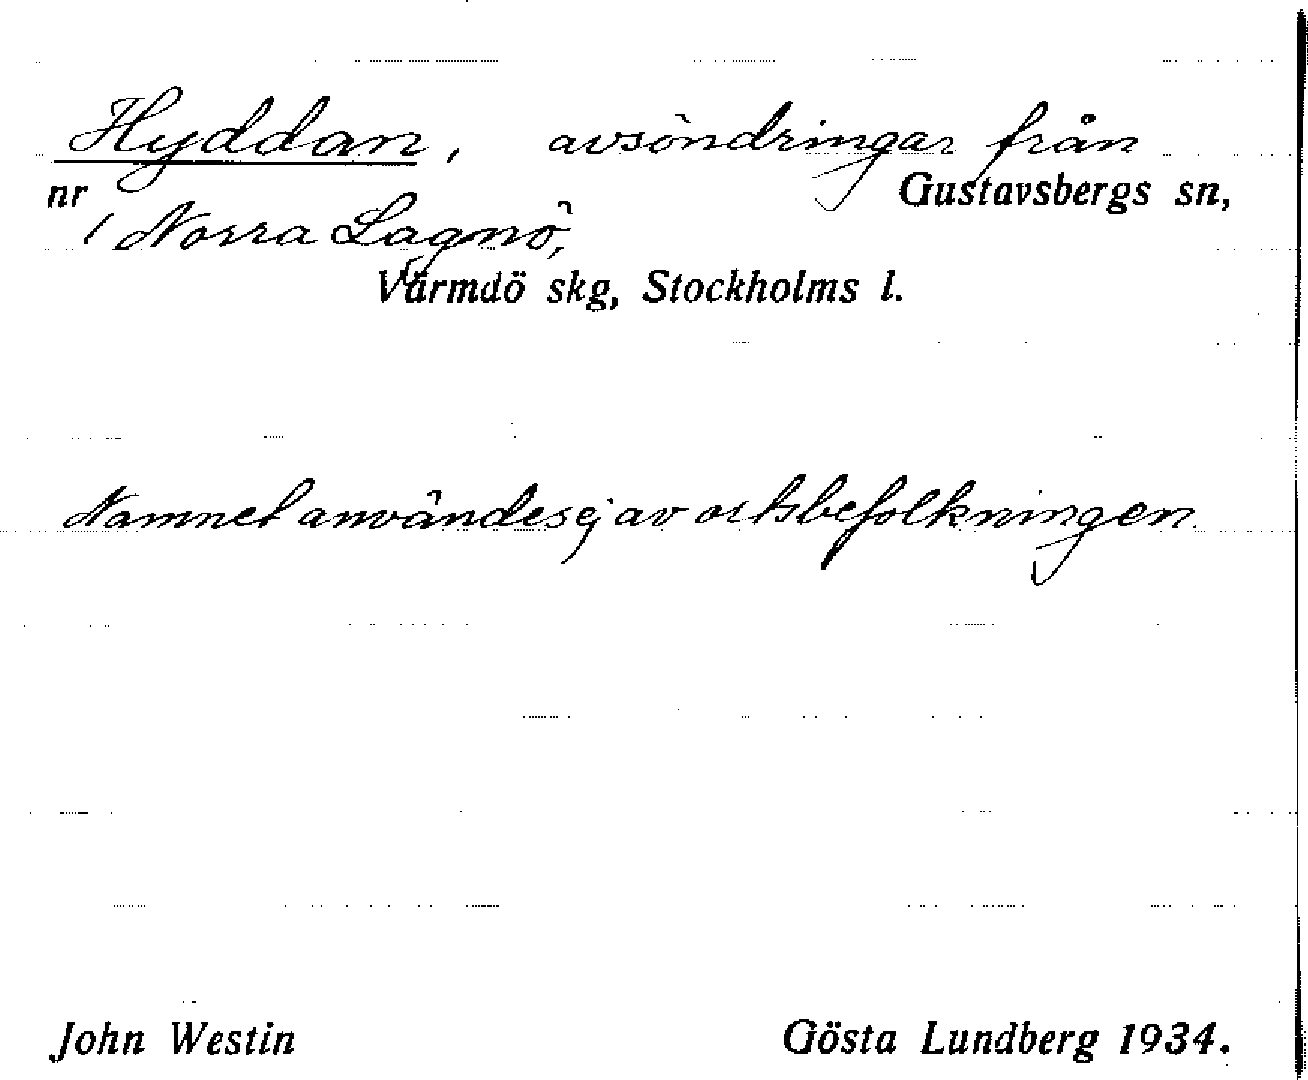 Hyddan, avsöndringar från
nr Gustavsbergs sn,
1 Norra Lagnö,
Värmdö skg, Stockholms l.
Namnet användes ej av ortsbefolkningen.
John Westin Gösta Lundberg 1934.